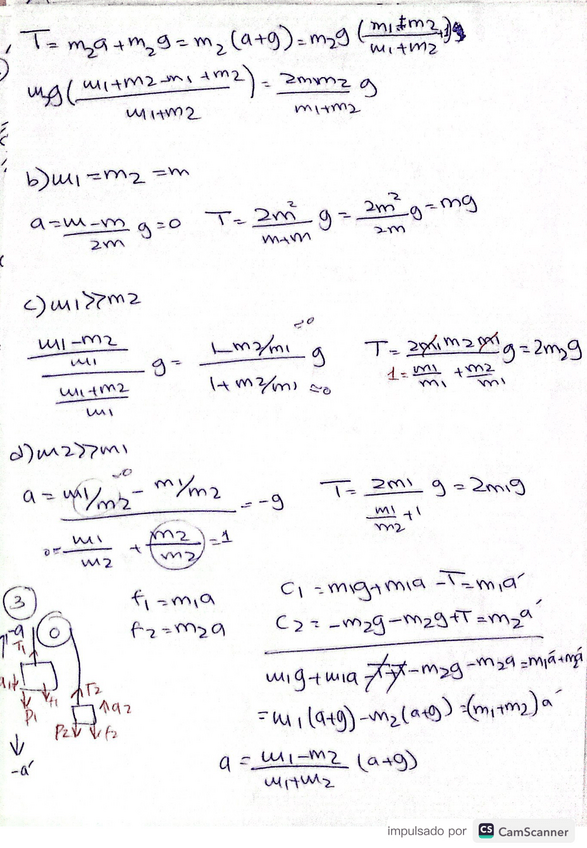 T = m₂a + m₂g = m₂(a+g) = m₂g (m₁+m₂/m₁+m₂
m₂g (m₁+m₂-m₁+m₂/m₁+m₂) = 2mm₂/m₁+m₂ g
b) m₁ = m₂ = m
a = m-m/2m g = 0 T = 2m²/m+m g = 2m²/2m g = mg
c) m₁ >> m₂
m₁-m₂/m₁/m₁+m₂/m₁ g = 1-m₂/m₁/1+m₂/m₁ g ≈0 ≈0 T = 2m₁m₂m₁/m₁/m₁+m₂/m₁ g = 2m₂g
1=
d) m₂ >> m₁
a = m₁/m₂ - m₁/m₂/m₁/m₂ + m₂/m₂ = -g ≈0 0= =1 T = 2m₁/m₁/m₂+1 g = 2m₁g
3
f₁ = m₁a
f₂ = m₂a
-a
T₁
P₁ f₁
T₂
a₂
P₂ f₂
-a'
C₁ = m₁g + m₁a - T = m₁a'
C₂ = -m₂g - m₂g + T = m₂a'
m₁g + m₁a - T + T - m₂g - m₂a = m₁a' + m₂a'
= m₁(a+g) - m₂(a+g) = (m₁+m₂)a'
a = m₁-m₂/m₁+m₂ (a+g)
impulsado por CS CamScanner